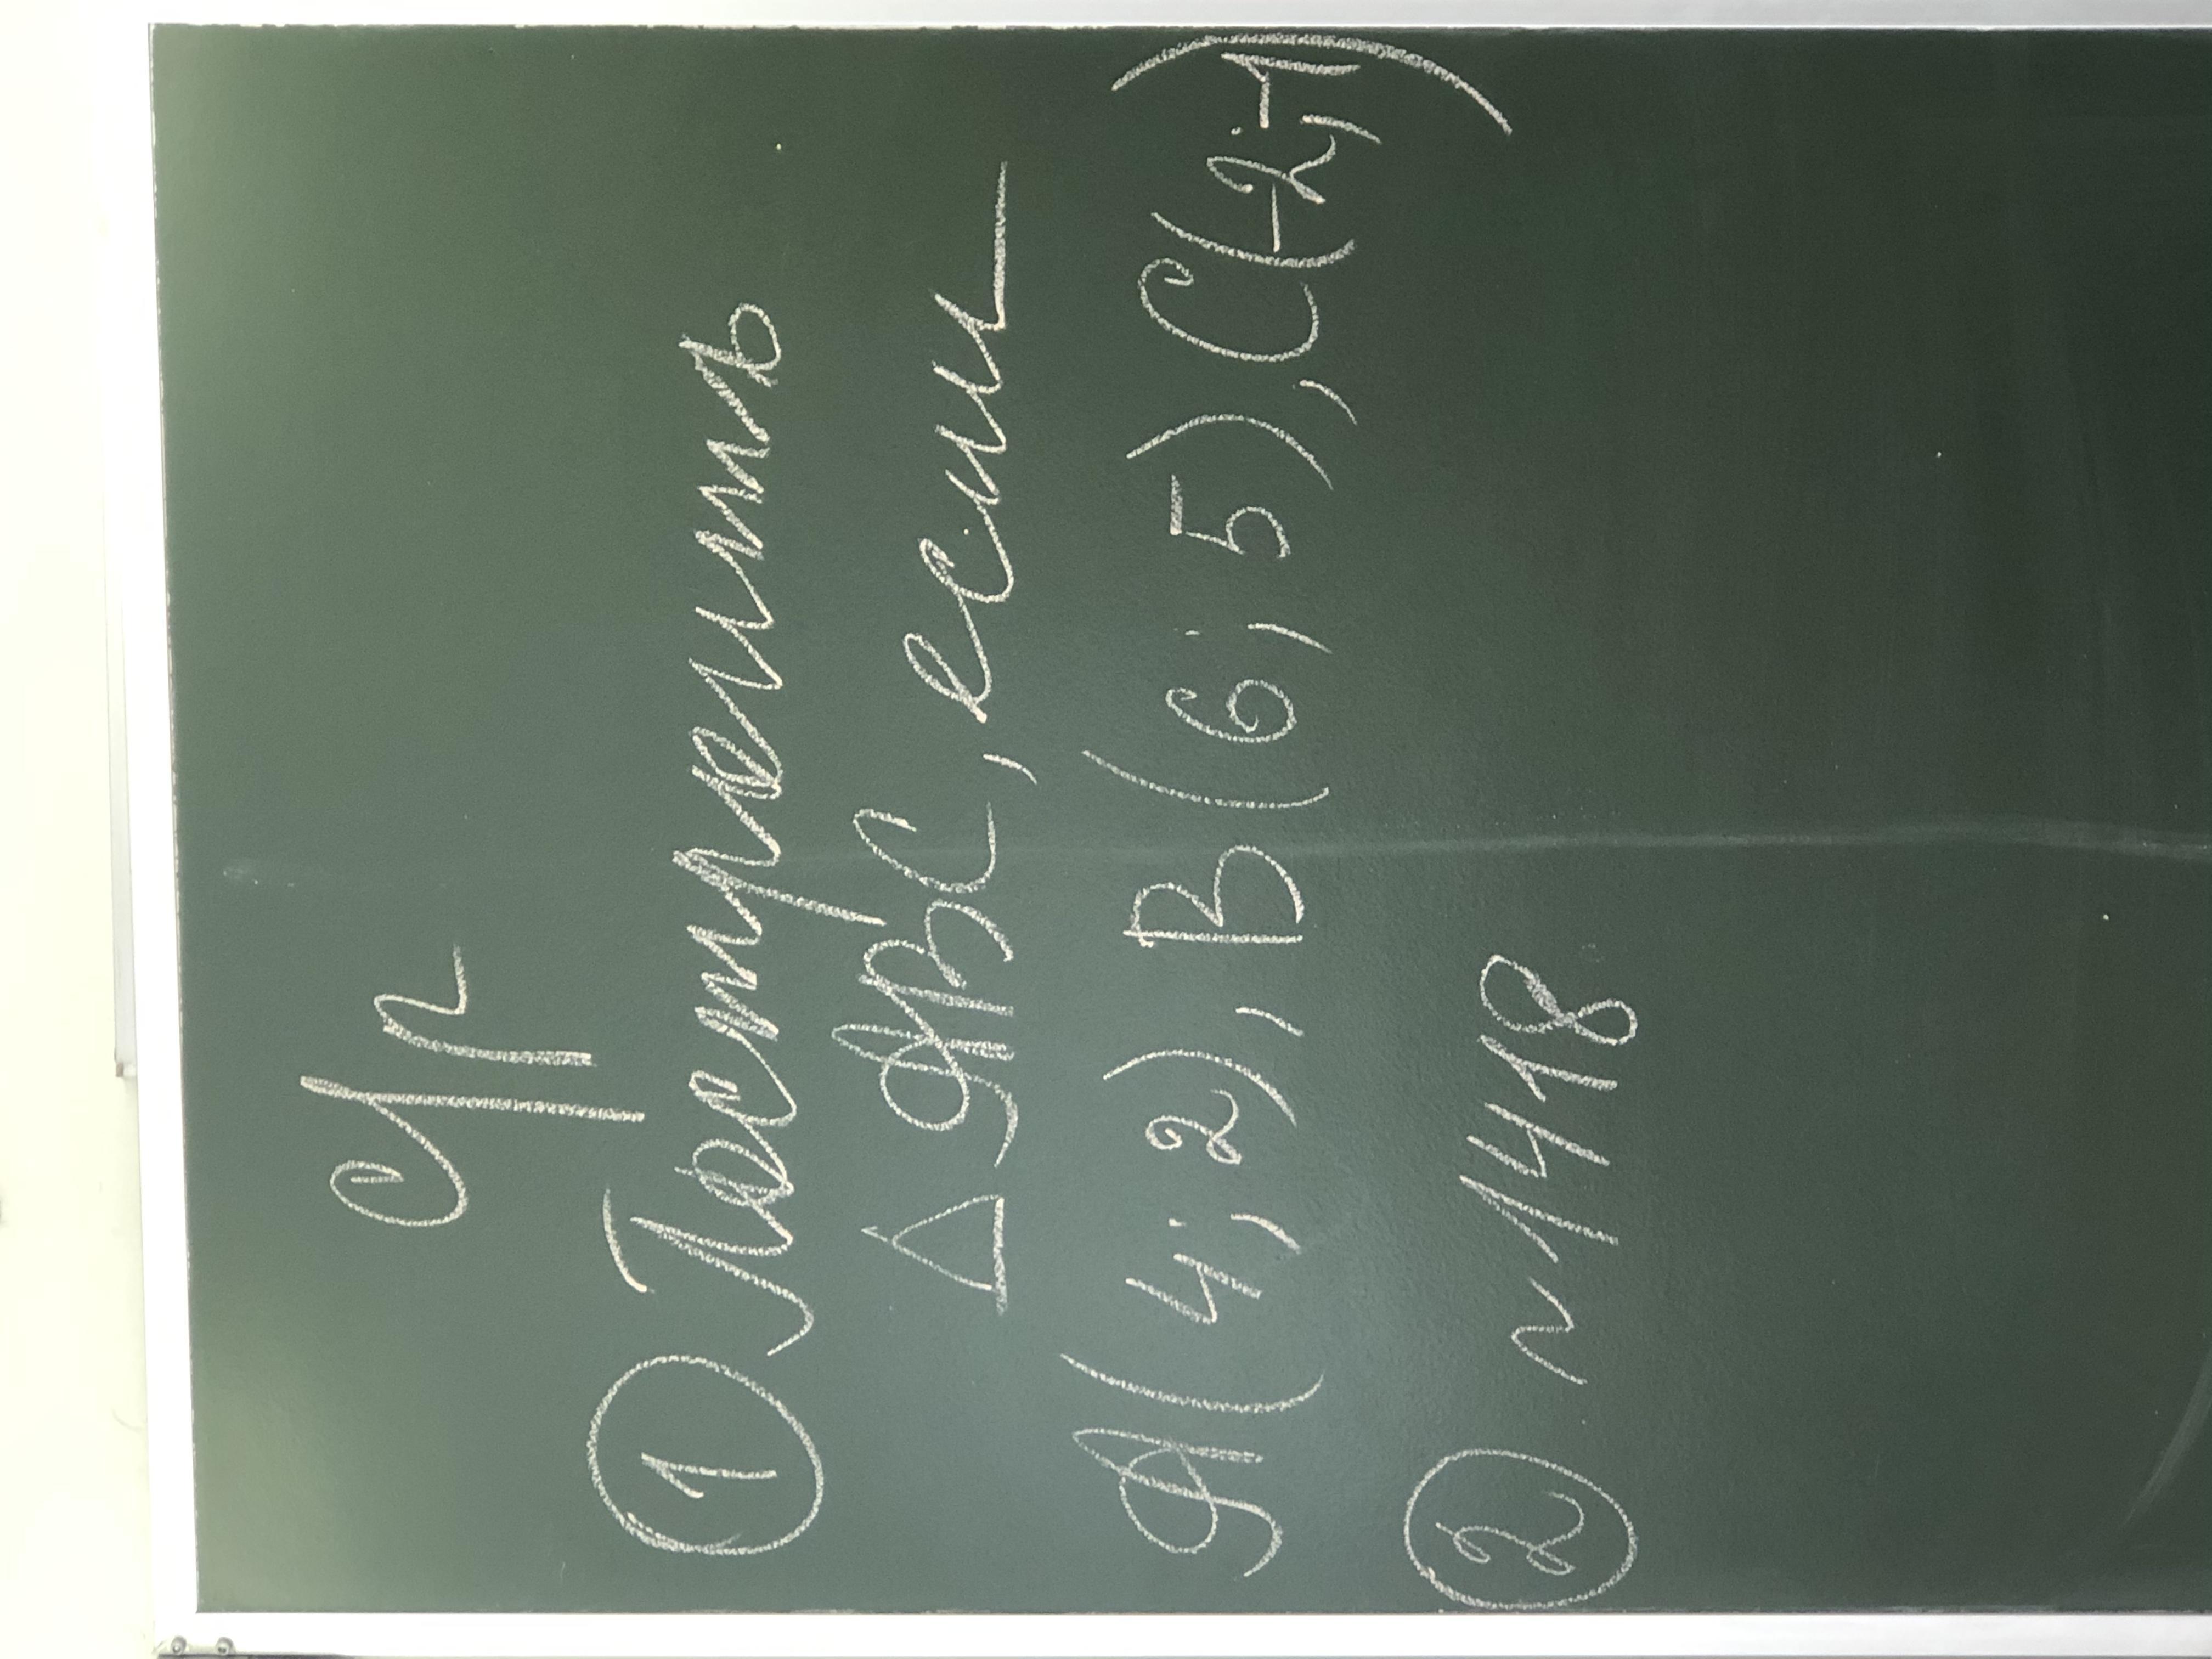 Ср
① Построить
△ABC, если
A(4;2), B(6;5), C(-2;-1)
② ~1418